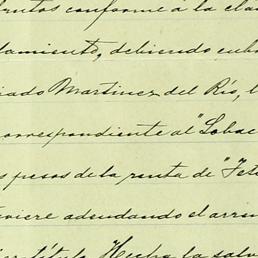 frutos conforme á la cla
damiento, debiendo cub
ciado Martinez del Río, l
correspondiente al "Lobac
s pesos de la renta de "Tete
viere adeudando el arren
título. Hecha la salv